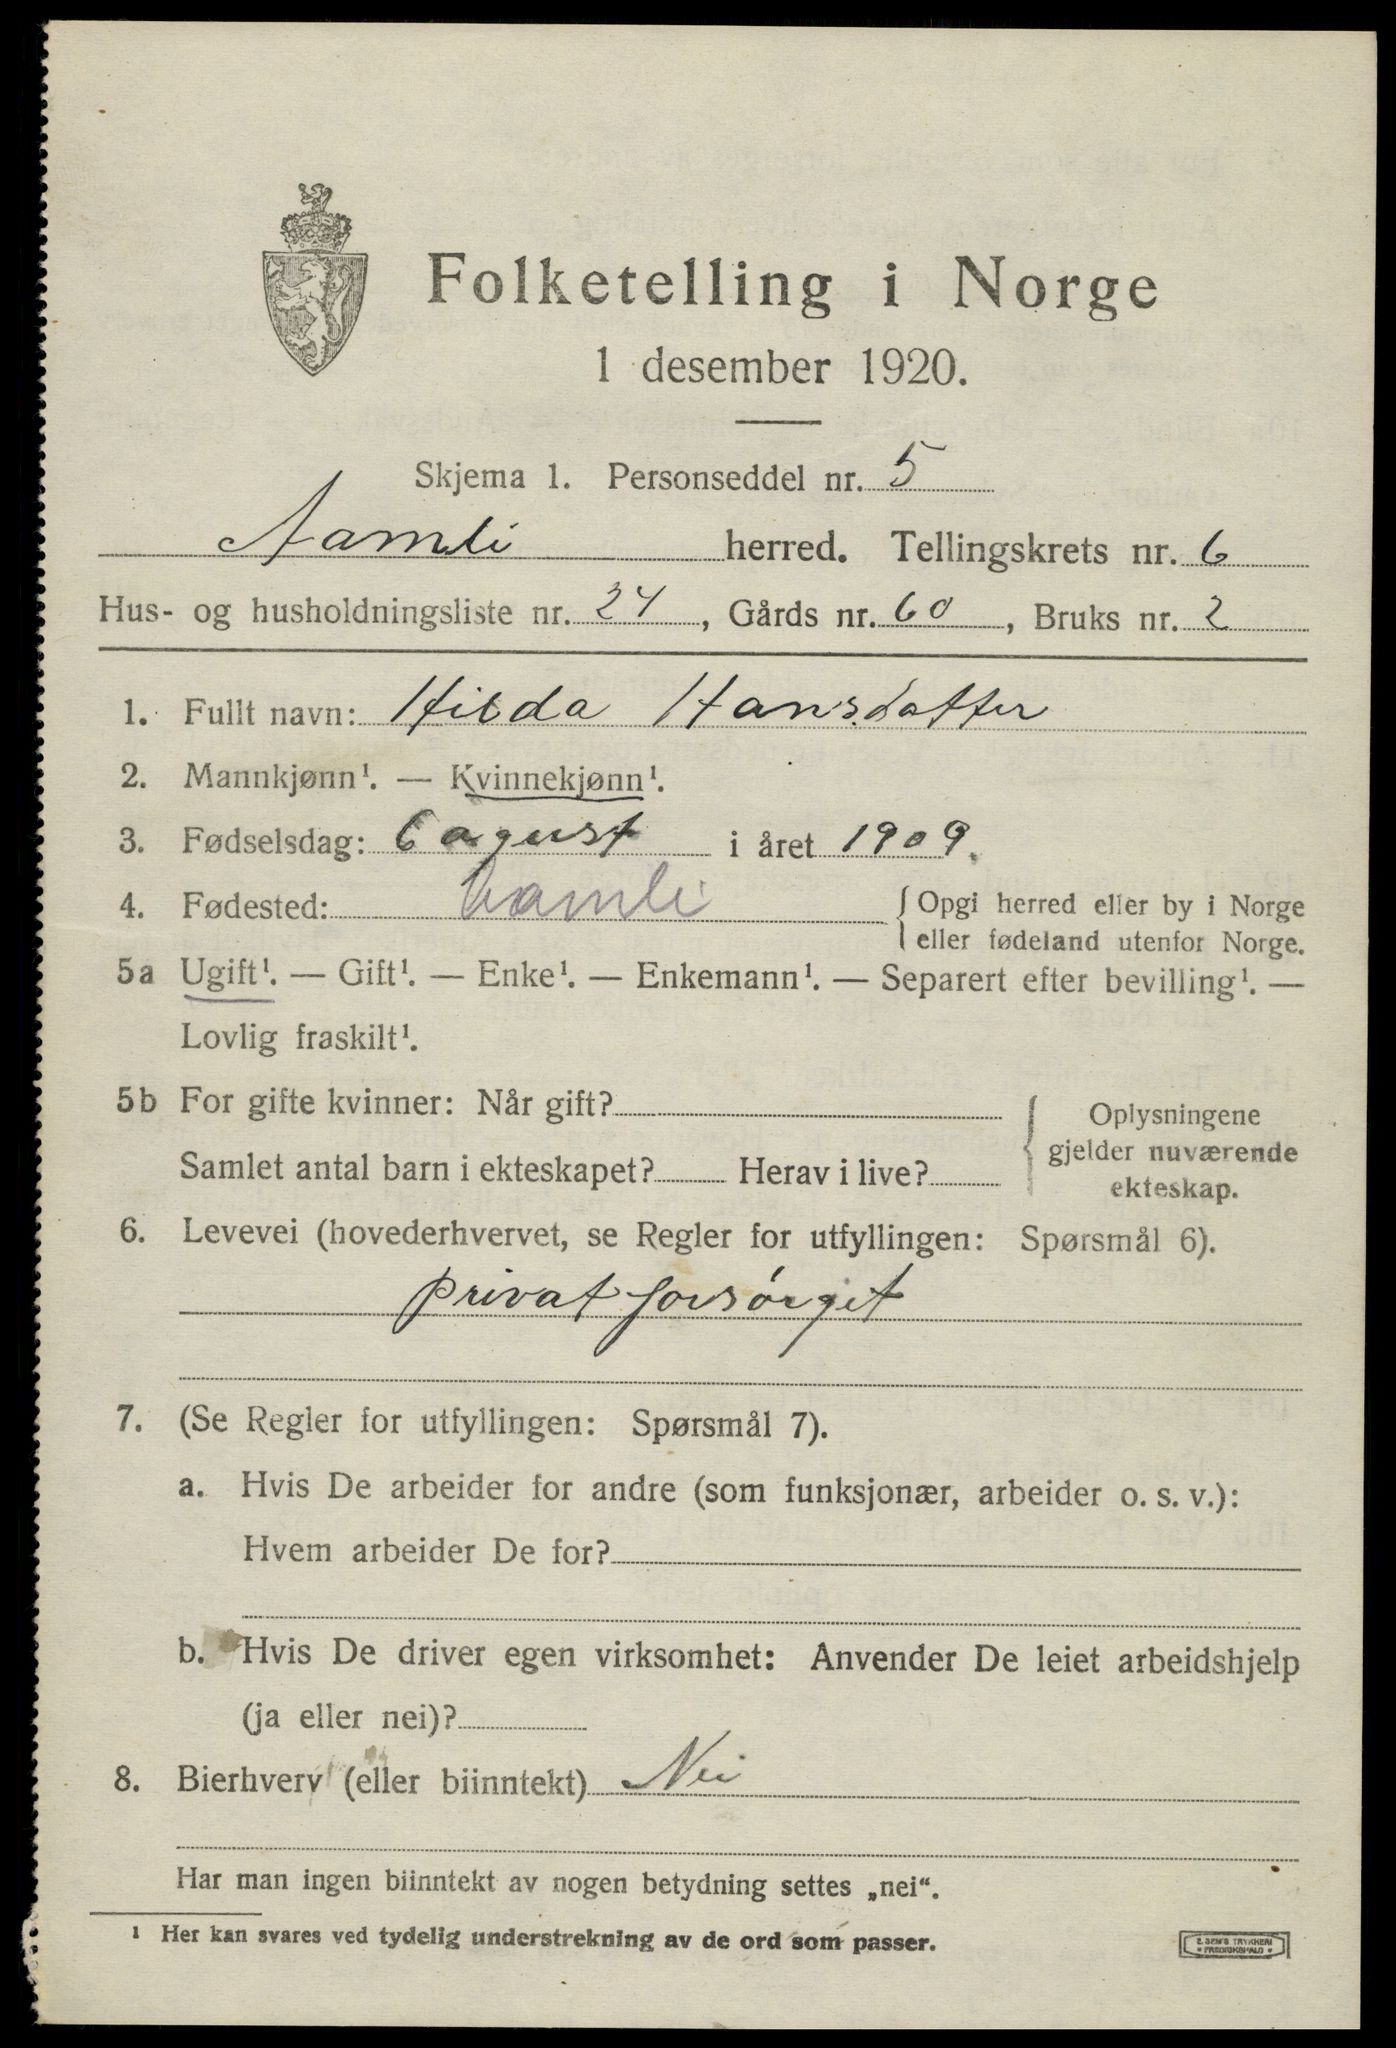 Folketelling i Norge
1 desember 1920.
Skjema 1. Personseddel nr. 5
Aamli herred. Tellingskrets nr. 6
Hus- og husholdningsliste nr. 24, Gårds nr. 60, Bruks nr. 2
1. Fullt navn: Hilda Hansdatter
2. Mannkjønn¹. — Kvinnekjønn¹.
3. Fødselsdag: 6 agust i året 1909.
4. Fødested: Aamli { Opgi herred eller by i Norge
eller fødeland utenfor Norge.
5a Ugift¹. — Gift¹. — Enke¹. — Enkemann¹. — Separert efter bevilling¹. —
Lovlig fraskilt¹.
5b For gifte kvinner: Når gift? { Oplysningene
gjelder nuværende
Samlet antal barn i ekteskapet? Herav i live?
ekteskap.
6. Levevei (hovederhvervet, se Regler for utfyllingen: Spørsmål 6).
privat forsørget
7. (Se Regler for utfyllingen: Spørsmål 7).
a. Hvis De arbeider for andre (som funksjonær, arbeider o. s. v.):
Hvem arbeider De for?
b. Hvis De driver egen virksomhet: Anvender De leiet arbeidshjelp
(ja eller nei)?
8. Bierhverv (eller biinntekt) Nei
Har man ingen biinntekt av nogen betydning settes „nei“.
¹ Her kan svares ved tydelig understrekning av de ord som passer.
E. SEM'S TRYKKERI
* FREDRIKSHALD *